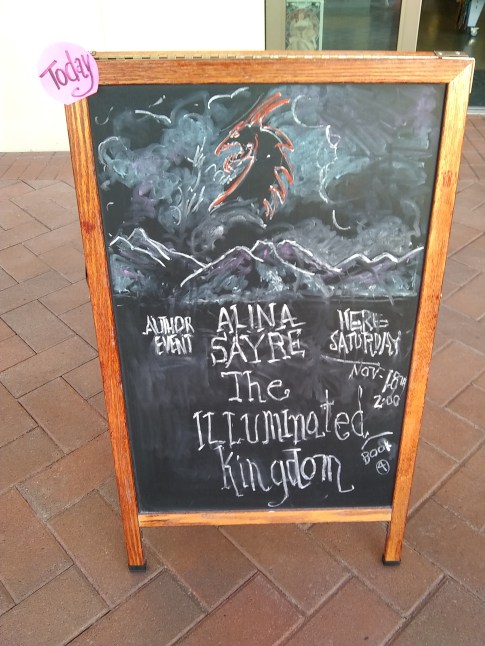 Today
AUTHOR
EVENT
ALINA
SAYRE
HERE
SATURDAY
NOV. 18TH
2:00
The
ILLUMInated
Kingdom
BOOK
4